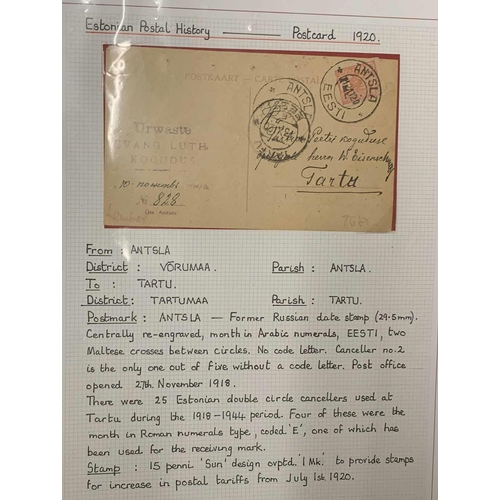 Estonian Postal History — Postcard 1920.
POSTKAART — CARTE POSTALE
ANTSLA
EESTI
ANTSLA
Urwaste
EVANG. LUTH.
KOGUDUS
10. novembri
№ 828
Tartu
From : ANTSLA
District : VÕRUMAA. Parish : ANTSLA.
To : TARTU.
District : TARTUMAA Parish : TARTU.
Postmark : ANTSLA — Former Russian date stamp (29.5mm).
Centrally re-engraved, month in Arabic numerals, EESTI, two
Maltese crosses between circles. No code letter. Canceller no.2
is the only one out of five without a code letter. Post office
opened 27th November 1918.
There were 25 Estonian double circle cancellers used at
Tartu during the 1918-1944 period. Four of these were the
month in Roman numerals type, coded 'E', one of which has
been used for the receiving mark.
Stamp : 15 penni 'Sun' design ovptd. '1 Mk.' to provide stamps
for increase in postal tariffs from July 1st 1920.